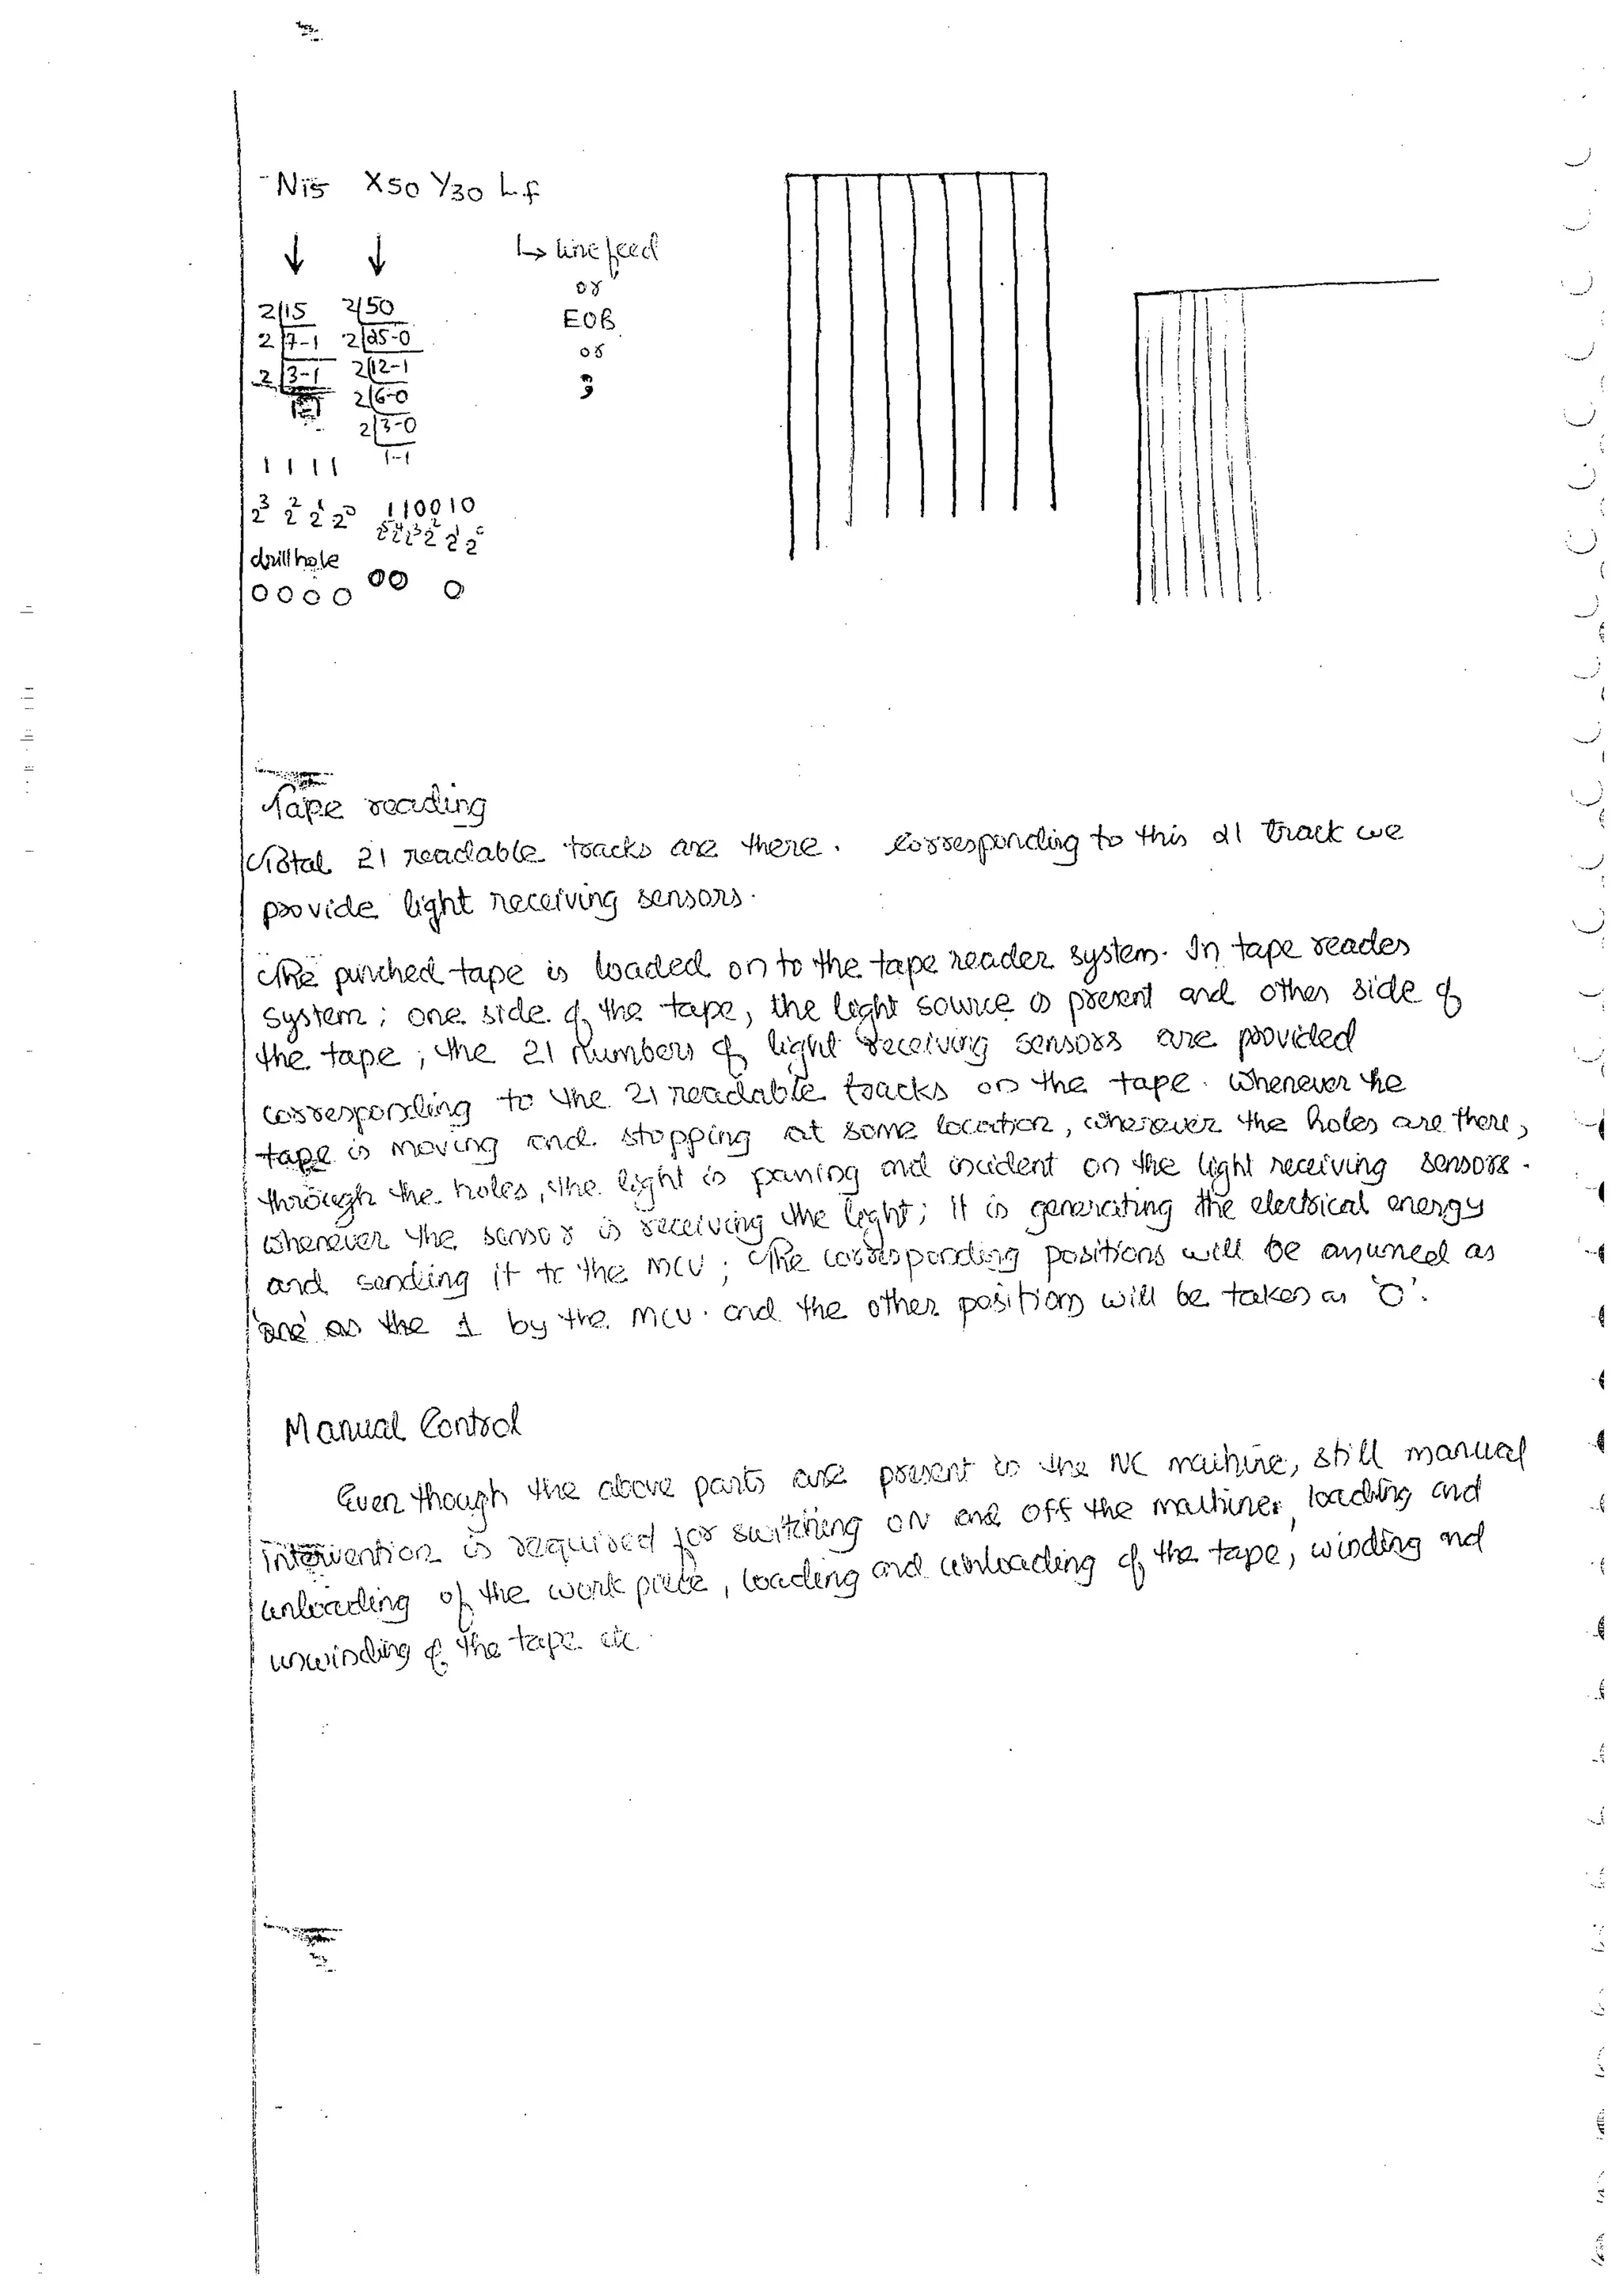 N15 X50 Y30 Lf
↓ ↓ ↳ line feed
or
2|15 2|50
EOB
2|7-1 2|25-0
or
2|3-1 2|12-1
;
2|6-0
2|3-0
1 1 1 1 1-1
2³ 2² 2¹ 2⁰ 110010
2⁵ 2⁴ 2³ 2² 2¹ 2⁰
drill hole
0 0 0 0 00 0
Tape reading
Total 21 readable tracks are there. Corresponding to this 21 track we
provide light receiving sensors.
The punched tape is loaded on to the tape reader system. In tape reader
system; one side of the tape, the light source is present and other side of
the tape, the 21 numbers of light receiving sensors are provided
corresponding to the 21 readable tracks on the tape. Whenever the
tape is moving and stopping at some location, wherever the holes are there,
through the holes, the light is passing and incident on the light receiving sensors.
Whenever the sensor is receiving the light; it is generating the electrical energy
and sending it to the MCU; The corresponding positions will be assumed as
'one' as the 1 by the MCU. and the other positions will be taken as '0'.
Manual Control
Even though the above parts are present in the NC machine, still manual
intervention is required for switching ON and OFF the machines, loading and
unloading of the work piece, loading and unloading of the tape, winding nd
unwinding of the tape etc.